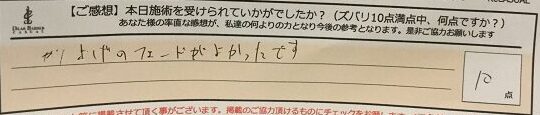 【ご感想】本日施術を受けられていかがでしたか？（ズバリ10点満点中、何点ですか？）
あなた様の率直な感想が、私達の何よりの力となり今後の参考となります。是非ご協力お願いします
かりよげのフェードがよかったです
10
点
掲載させて頂く事がございます。掲載のご協力頂けるものにチェックをお願い